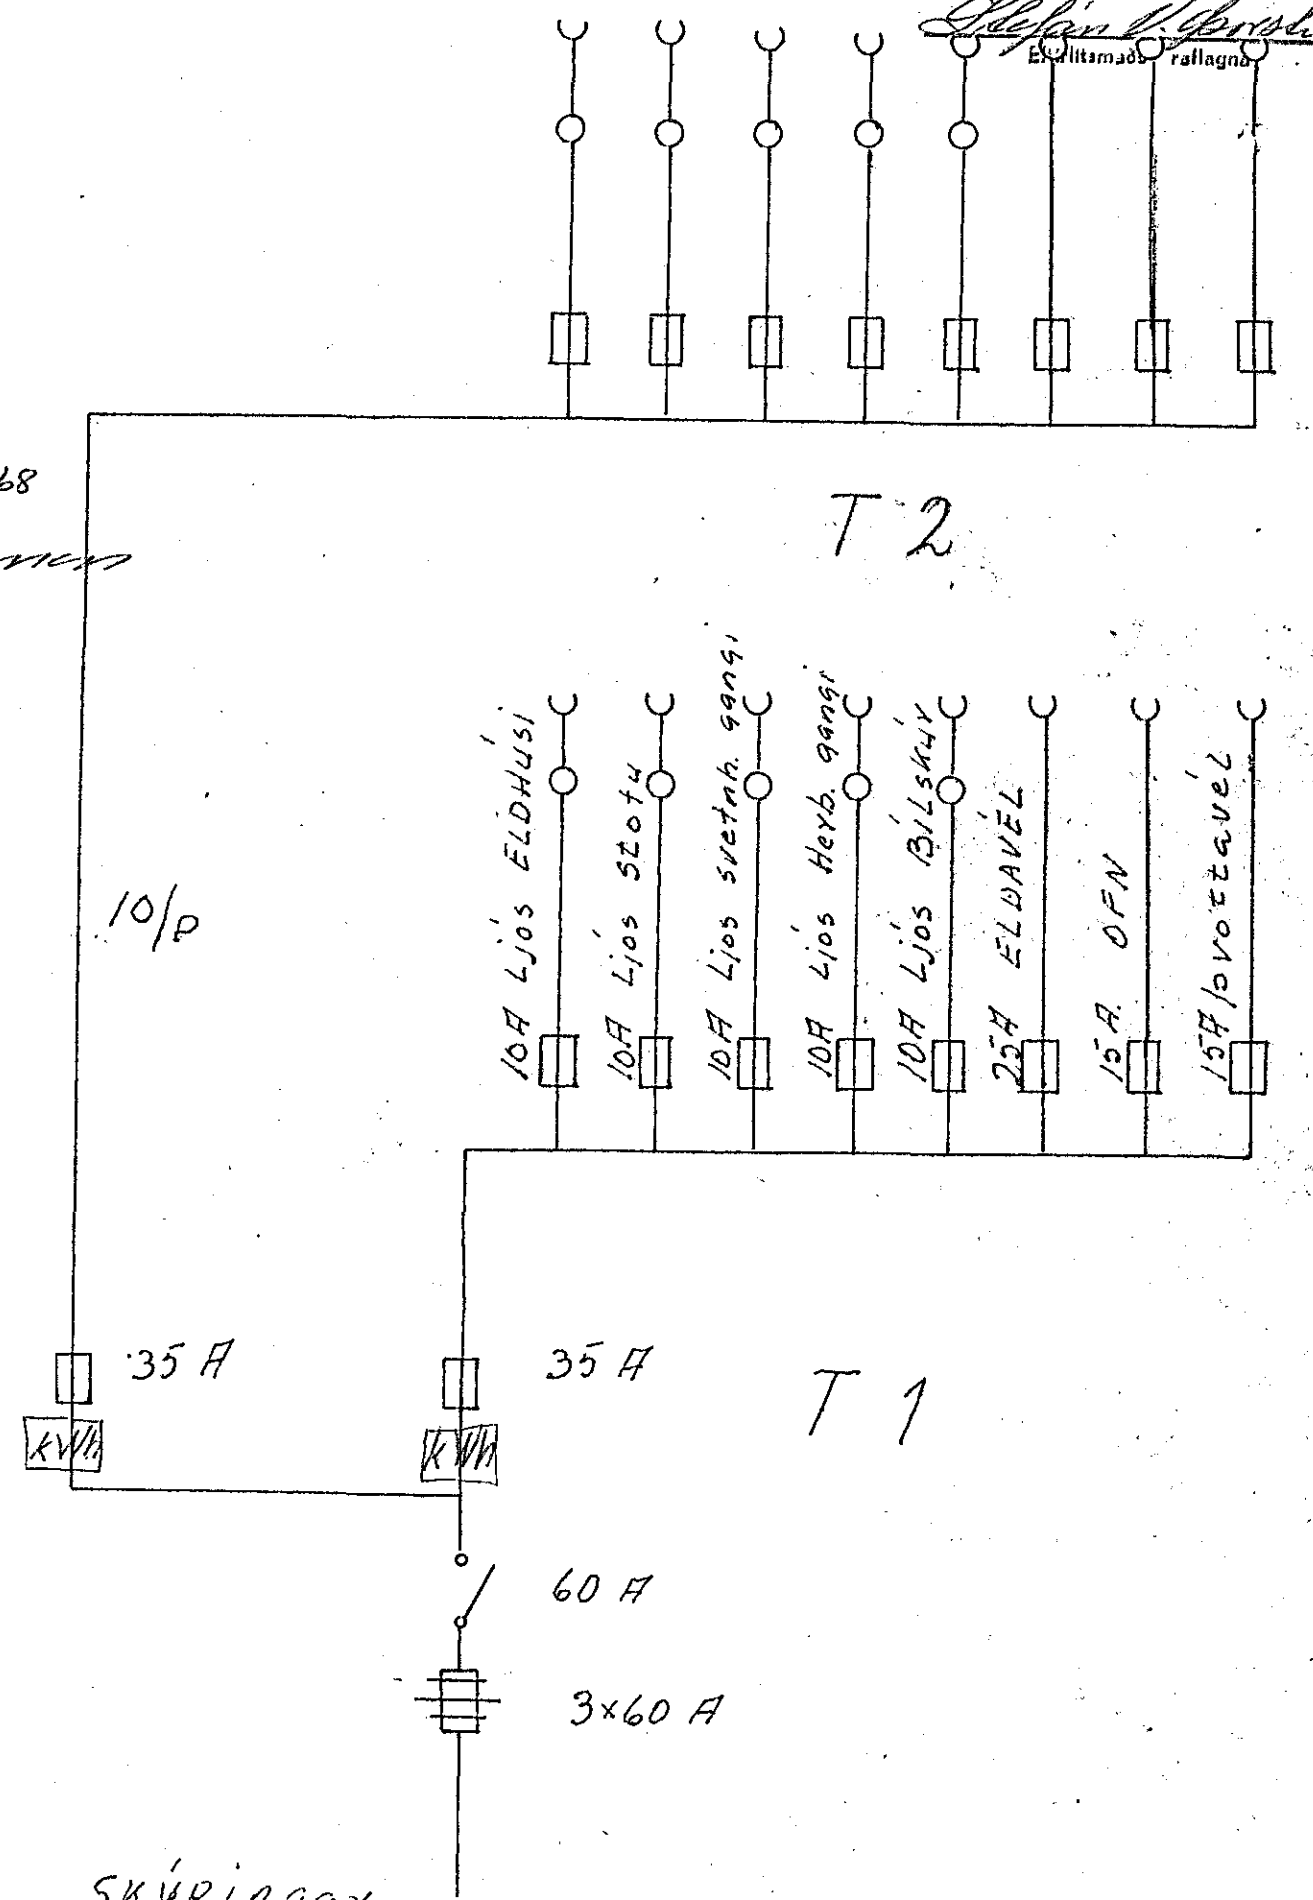 Stefán V. Þorst
Eftirlitsmaður raflagna
68
T 2
10A Ljós ELDHúsi
10A Ljós Stotu
10A Ljos svetnh. gangi
10A Ljós Herb. gangi
10A Ljós Bílskúr
25A ELDAVÉL
15A. OFN
15A Þvottavél
10/p
35 A
35 A
T 1
kWh
kWh
60 A
3x60 A
SKÝRINGAR